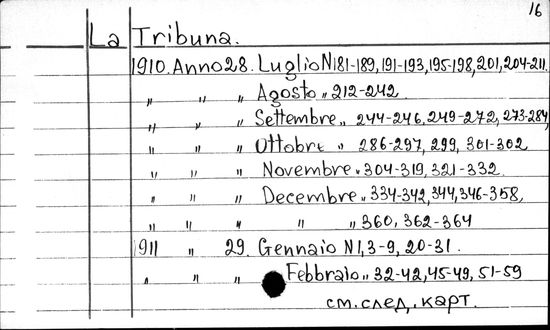 16
La Tribuna.
1910. Anno 28. Luglio N181-189, 191-193, 195-198, 201, 204-211.
„ „ „ Agosto „ 212-242
„ „ „ Settembre „ 244-246, 249-272, 273-284,
„ „ „ Ottobre „ 286-297, 299, 301-302
„ „ „ Novembre „ 304-319, 321-332
„ „ „ Decembre „ 334-342, 344, 346-358,
„ „ „ „ „ 360, 362-364
1911 „ 29. Gennaio N1, 3-9, 20-31.
„ „ „ Febbraio „ 32-42, 45-49, 51-59
см. след. карт.